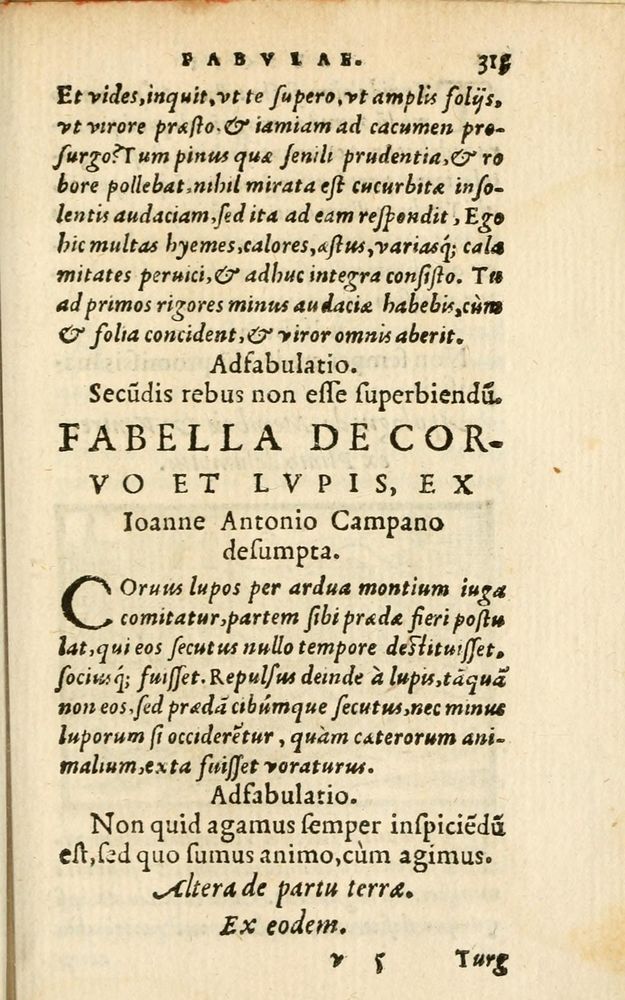 FABVLAE. 315
Et vides, inquit, vt te supero, vt amplis folijs,
vt virore præsto, & iamiam ad cacumen pro-
surgo? Tum pinus quæ senili prudentia, & ro
bore pollebat, nihil mirata est cucurbitæ inso-
lentis audaciam, sed ita ad eam respondit, Ego
hic multas hyemes, calores, æstus, variasq; cala
mitates peruici, & adhuc integra consisto. Tu
ad primos rigores minus audaciæ habebis, cùm
& folia concident, & viror omnis aberit.
Adfabulatio.
Secūdis rebus non esse superbiendū.
FABELLA DE COR-
VO ET LVPIS, EX
Ioanne Antonio Campano
desumpta.
COruus lupos per ardua montium iuga
comitatur, partem sibi prædæ fieri postu
lat, qui eos secutus nullo tempore destituisset,
sociusq; fuisset. Repulsus deinde à lupis, tāquā
non eos, sed prædā cibúmque secutus, nec minus
luporum si occiderētur, quàm cæterorum ani-
malium, exta fuisset voraturus.
Adfabulatio.
Non quid agamus semper inspiciēdū
est, sed quo sumus animo, cùm agimus.
Altera de partu terræ.
Ex eodem.
v 5 Turg